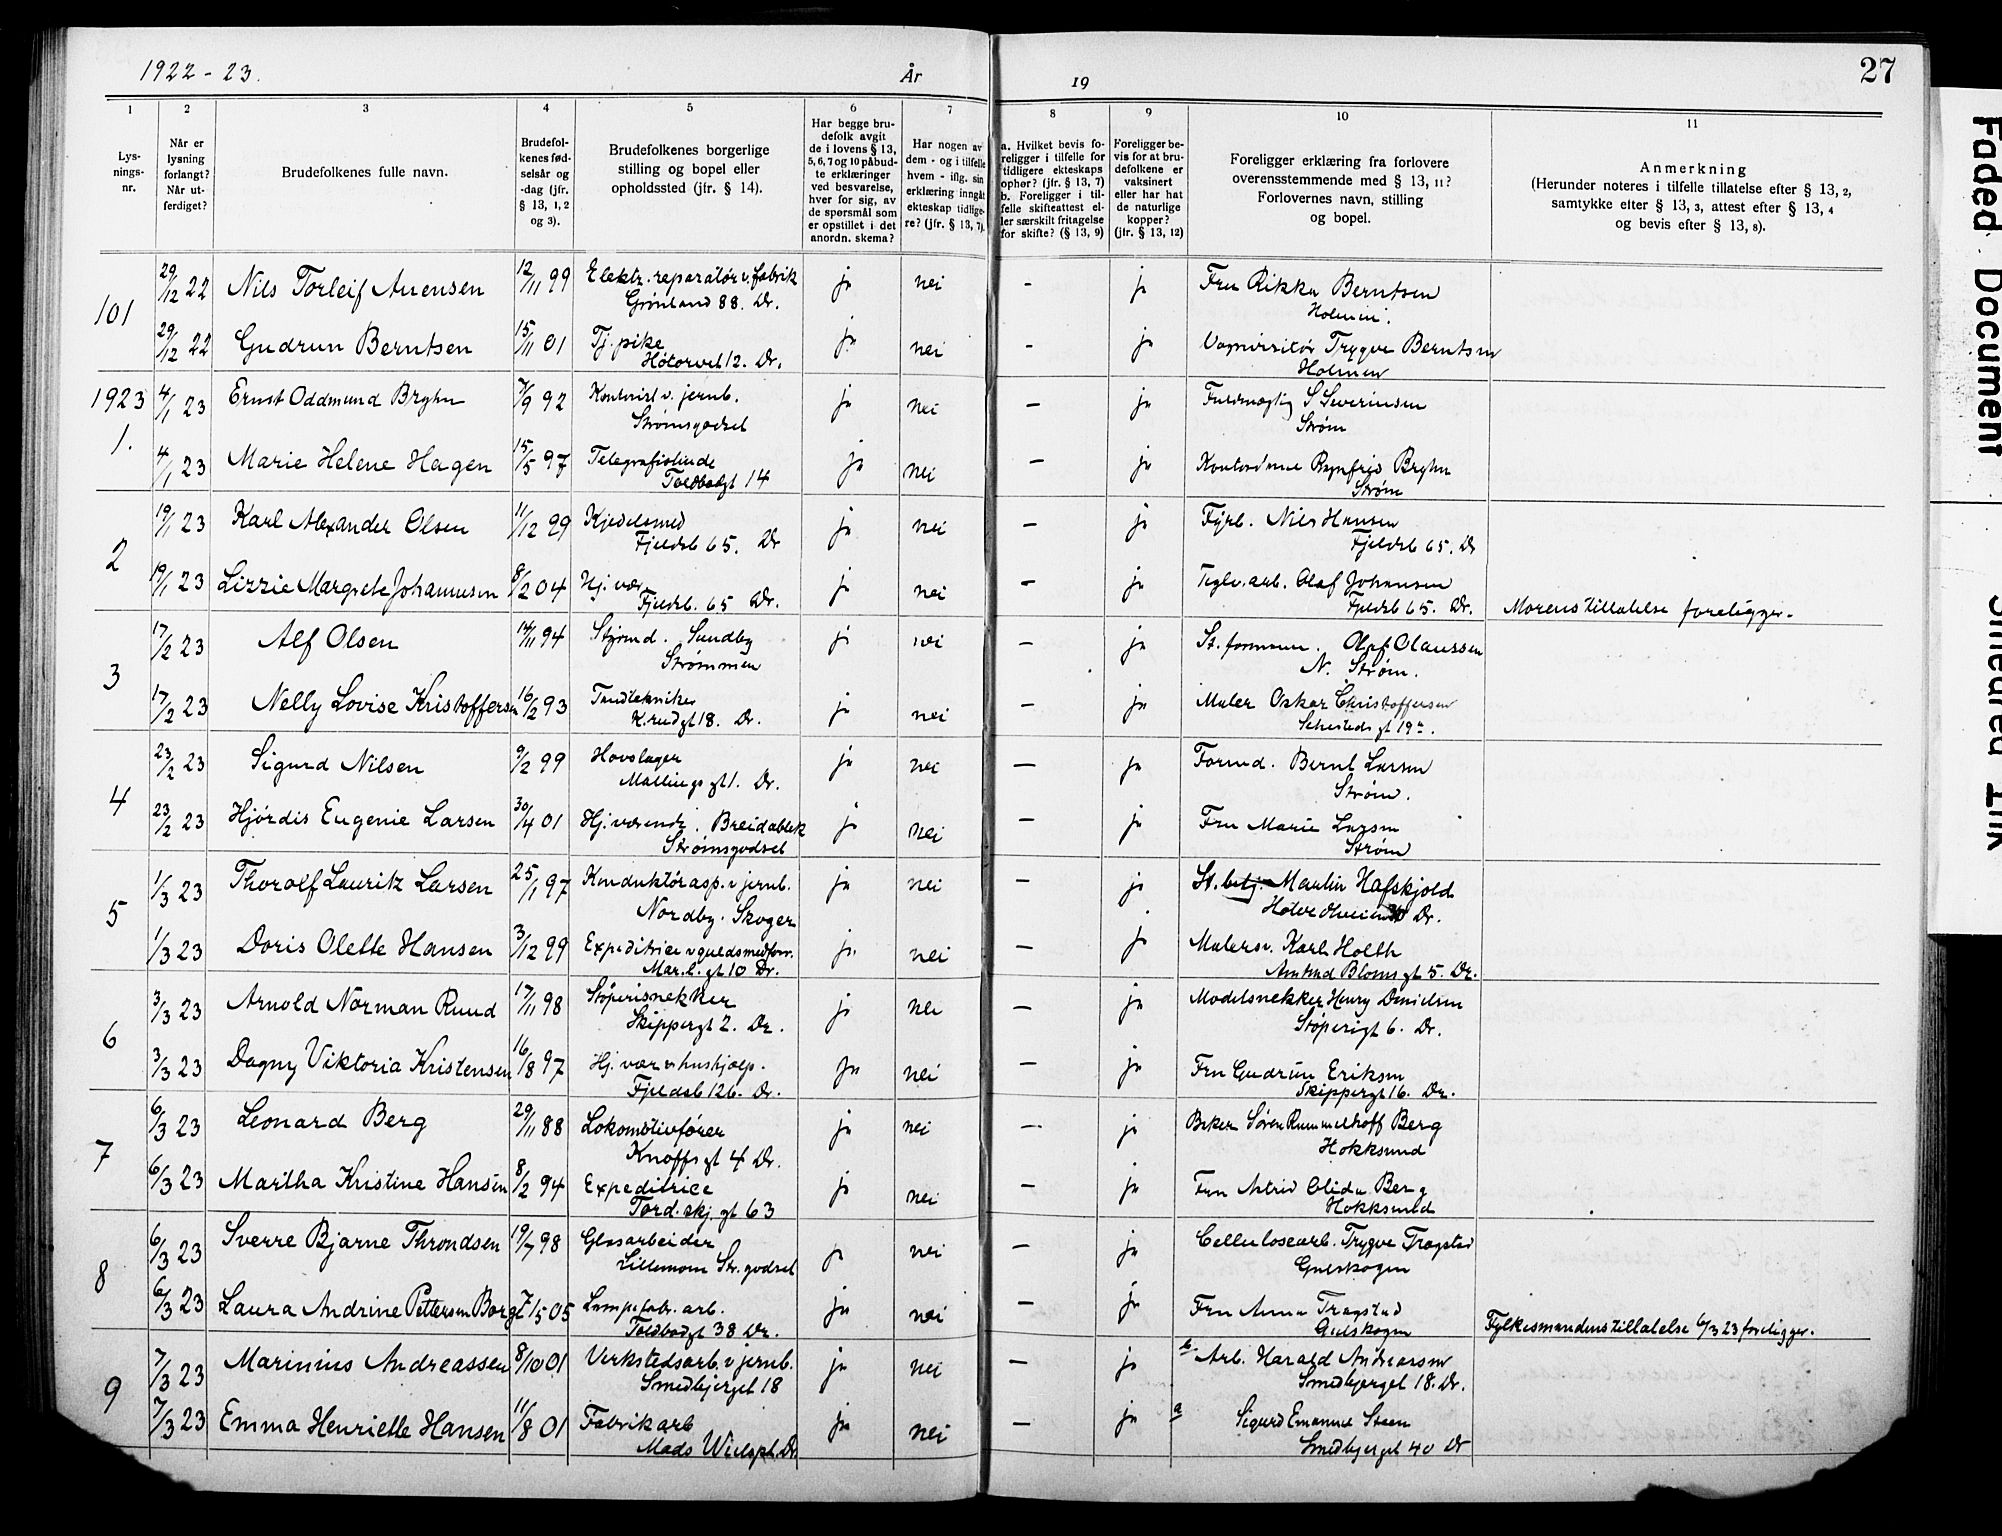 1922 - 23.
År
19
27
1
2
3
4
5
6
7
8
9
10
11
Lys-
nings-
nr.
Når er
lysning
forlangt?
Når ut-
ferdiget?
Brudefolkenes fulle navn.
Brudefol-
kenes fød-
selsår og
-dag (jfr.
§ 13, 1, 2
og 3).
Brudefolkenes borgerlige
stilling og bopel eller
opholdssted (jfr. § 14).
Har begge bru-
defolk avgit
de i lovens § 13,
5, 6, 7 og 10 påbud-
te erklæringer
ved besvarelse,
hver for sig, av
de spørsmål som
er opstillet i det
anordn. skema?
Har nogen av
dem - og i tilfelle
hvem - iflg. sin
erklæring inngåt
ekteskap tidlige-
re? (jfr. § 13, 7).
a. Hvilket bevis fo-
religger i tilfelle for
tidligere ekteskaps
ophør? (jfr. § 13, 7)
b. Foreligger i til-
felle skifteattest el-
ler særskilt fritagelse
for skifte? (§ 13, 9)
Foreligger be-
vis for at bru-
defolkene er
vaksinert
eller har hat
de naturlige
kopper?
(jfr. § 13, 12)
Foreligger erklæring fra forlovere
overensstemmende med § 13, 11?
Forlovernes navn, stilling
og bopel.
Anmerkning
(Herunder noteres i tilfelle tillatelse efter § 13, 2,
samtykke efter § 13, 3, attest efter § 13, 4
og bevis efter § 13, 8).
101
29/12 22 Nils Torleif Auensen 12/11 99 Elektr. reparatør v. fabrik ja nei - ja Fru Rikka Berntsen
Grønland 88. Dr. Holmen.
29/12 22 Gudrun Berntsen 15/11 01 Tj. pike ja nei - ja Vognvisitør Trygve Berntsen
Høtorvet 12. Dr. Holmen
1923
1.
4/1 23 Ernst Oddmund Bryhn 7/9 92 Kontorist v. jernb. ja nei - ja Fuldmægtig S Severinsen
Strømsgodset Strøm
4/1 23 Marie Helene Hagen 15/5 97 Telegrafistinde ja nei - ja Kontordame Ragnfrid Bryhn
Toldbodgt 14 Strøm
2
19/1 23 Karl Alexander Olsen 11/12 99 Kjedelsmed ja nei - ja Fyrb. Nils Hansen
Fjeldsb 65. Dr Fjeldsb 65. Dr
19/1 23 Lizzie Margrete Johannesen 8/2 04 Hj. vær ja nei - ja Teglv. arb. Olaf Johansen
Fjeldsb. 65 Dr. Fjeldsb 65. Dr. Morens tillatelse foreligger.
3
17/2 23 Alf Olsen 14/11 94 Styrmd. Sundby ja nei - ja St. formann. Olaf Olaussen
Strømmen N. Strøm.
17/2 23 Nelly Lovise Kristoffersen 16/2 93 Tandtekniker ja nei - ja Maler Oskar Christoffersen
K.rudgt 18. Dr. Schesteds gt 19
4
23/2 23 Sigurd Nilsen 9/2 99 Hovslager ja nei - ja Formd. Bernt Larsen
Mallings gt 1. Dr. Strøm.
23/2 23 Hjørdis Eugenie Larsen 30/4 01 Hj. værende. Breidablik ja nei - ja Fru Marie Larsen
Strømsgodset Strøm
5
1/3 23 Thorolf Lauritz Larsen 25/1 97 Konduktørasp. v jernb. ja nei - ja St. betj. Martin Hafskjold
Nordby. Skoger Dr.
1/3 23 Doris Olette Hansen 3/12 99 Expeditrice v guldsmedforr. ja nei - ja Malersv. Karl Holth
Mar. k. gt 10 Dr. Amtmd Bloms gt 5. Dr.
6
3/3 23 Arnold Norman Ruud 17/11 98 Støperisnekker ja nei - ja Modelsnekker Henry Danielsen
Skippergt 2. Dr. Støperigt 6. Dr.
3/3 23 Dagny Viktoria Kristensen 16/8 97 Hj. vær v hushjælp. ja nei - ja Fru Gudrun Eriksen
Fjeldsb 126. Dr. Skippergt 16. Dr.
7
6/3 23 Leonard Berg 29/11 88 Lokomotivfører ja nei - ja Beker Søren Rummelhoff Berg
Knoffs gt 4 Dr. Hokksund
6/3 23 Martha Kristine Hansen 8/2 94 Expeditrice ja nei - ja Fru Astrid Olida Berg
Tord.skj. gt 63 Hokksund
8
6/3 23 Sverre Bjarne Throndsen 19/7 98 Glasarbeider ja nei - ja Cellulosearb. Trygve Trogstad
Lillemoen Str. godset Gulskogen
6/3 23 Laura Andrine Pettersen Borge 7/5 05 Lampefabr. arb. ja nei - ja Fru Anna Trogstad
Toldbodgt 38 Dr. Gulskogen Fylkesmandens tillatelse 6/3 23 foreligger.
9
7/3 23 Marinius Andreassen 8/10 01 Verkstedsarb. v jernb. ja nei - ja b. Arb. Harald Andreassen
Smedbjerget 18 Smedbjerget 18. Dr.
7/3 23 Emma Henriette Hansen 11/8 01 Fabrikarb ja nei - ja a Sigurd Emanuel Steen
Mads Wielspl. Dr. Smedbjerget 40 Dr
Faded Document
Smeared Ink